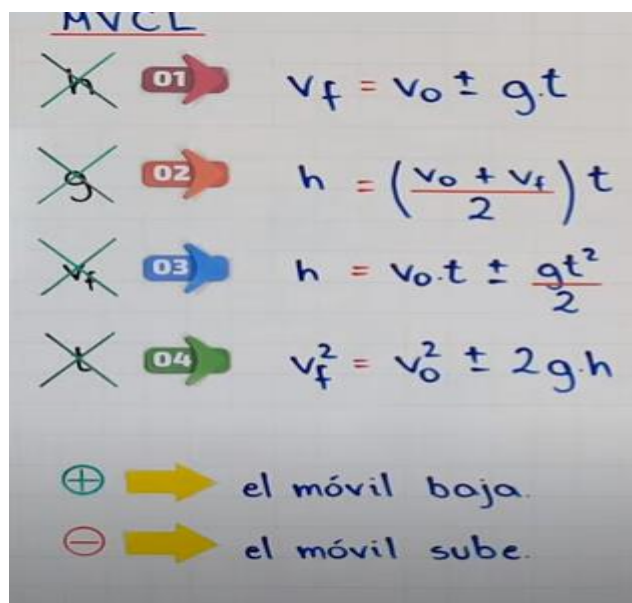 MVCL
h 01 vf = vo ± g.t
g 02 h = (vo + vf / 2) t
vf 03 h = vo.t ± gt² / 2
t 04 vf² = vo² ± 2g.h
⊕ el móvil baja.
⊖ el móvil sube.